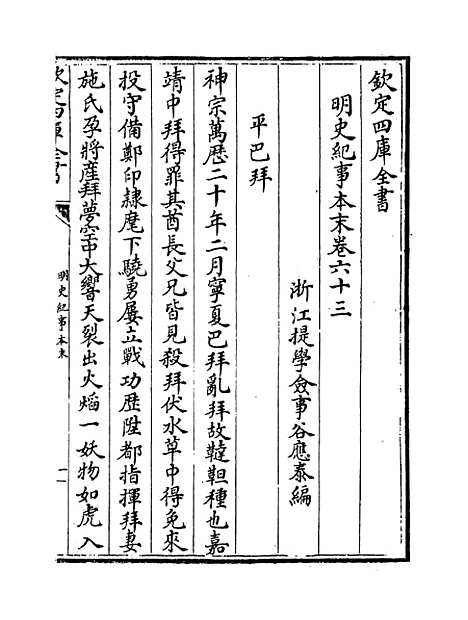 欽定四庫全書
明史紀事本末卷六十三
浙江提學僉事谷應泰編
平巴拜
神宗萬歷二十年二月寧夏巴拜亂拜故韃靼種也嘉
靖中拜得罪其酋長父兄皆見殺拜伏水草中得免來
投守備鄭印隷麾下驍勇屢立戰功歷陞都指揮拜妻
施氏孕將産拜夢空中大響天裂出火熖一妖物如虎入
欽定四庫全書
明史紀事本末
一